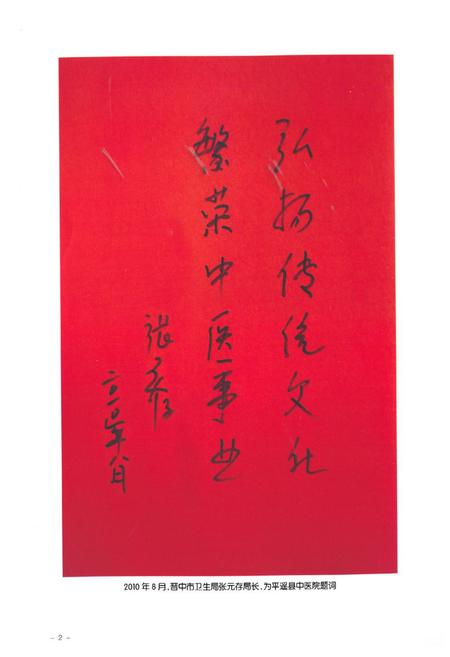 弘扬传统文化
繁荣中医事业
张元存
二〇一〇年八月
2010年8月,晋中市卫生局张元存局长,为平遥县中医院题词
- 2 -